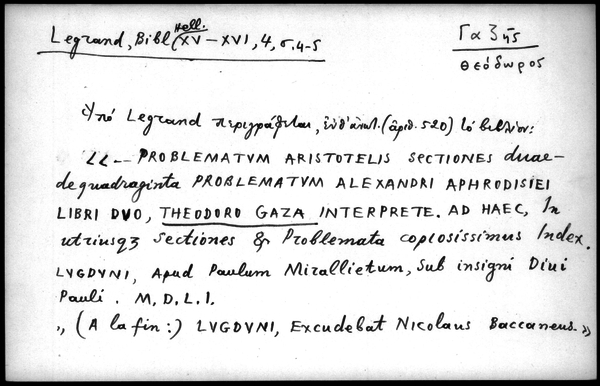 Legrand, Bibl. Hell. (XV-XVI, 4, σ. 4-5
Γαζῆς
Θεόδωρος
Ὑπό Legrand περιγράφεται, ἐνθ' ἀνωτ. (ἀριθ. 520) τό βιβλίον:
"— PROBLEMATVM ARISTOTELIS SECTIONES duae-
dequadraginta PROBLEMATVM ALEXANDRI APHRODISIEI
LIBRI DVO, THEODORO GAZA INTERPRETE. AD HAEC, In
utriusqȝ Sectiones & Problemata copiosissimus Index.
LVGDVNI, Apud Paulum Mirallietum, Sub insigni Diui
Pauli. M, D, L, I.
„ (A la fin:) LVGDVNI, Excudebat Nicolaus Baccaneus. »